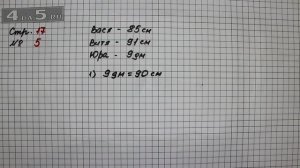 4 A 5 . r u
Стр. 17
№ 5
Вася - 85 см
Витя - 91 см
Юра - 9 дм
1) 9 дм = 90 см